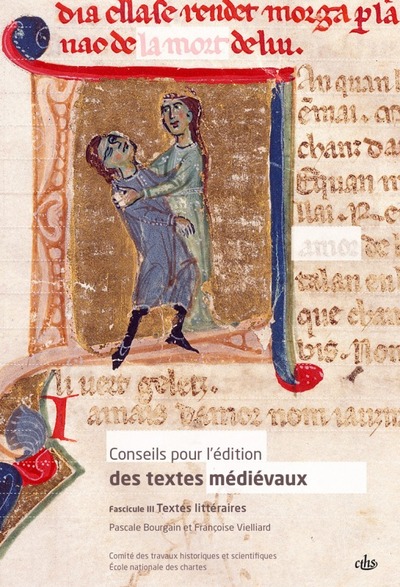 dia ella se rendet morga p la
nao de la mort de lui.
An quan l
chan
Equan
amor de l
ualan en
que chan
uis. Non
amais damor non iau
Conseils pour l'édition
des textes médiévaux
Fascicule III Textes littéraires
Pascale Bourgain et Françoise Vielliard
Comité des travaux historiques et scientifiques
École nationale des chartes
cths